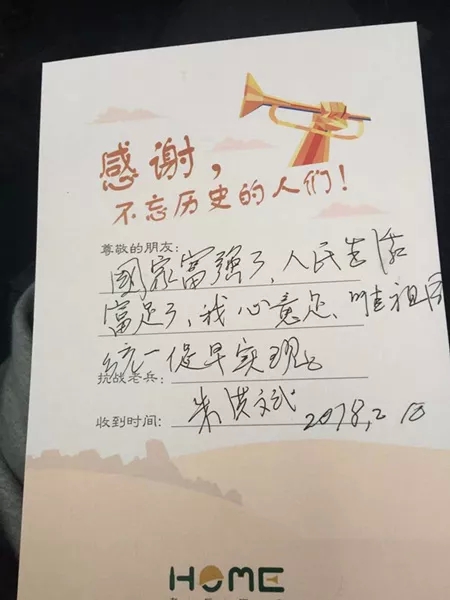 感谢，
不忘历史的人们！
尊敬的朋友：
國家富强了，人民生活
富足了，我心意足，唯祖国
统一促早实现。
抗战老兵：
收到时间：
朱洪斌 2018,2
HOME